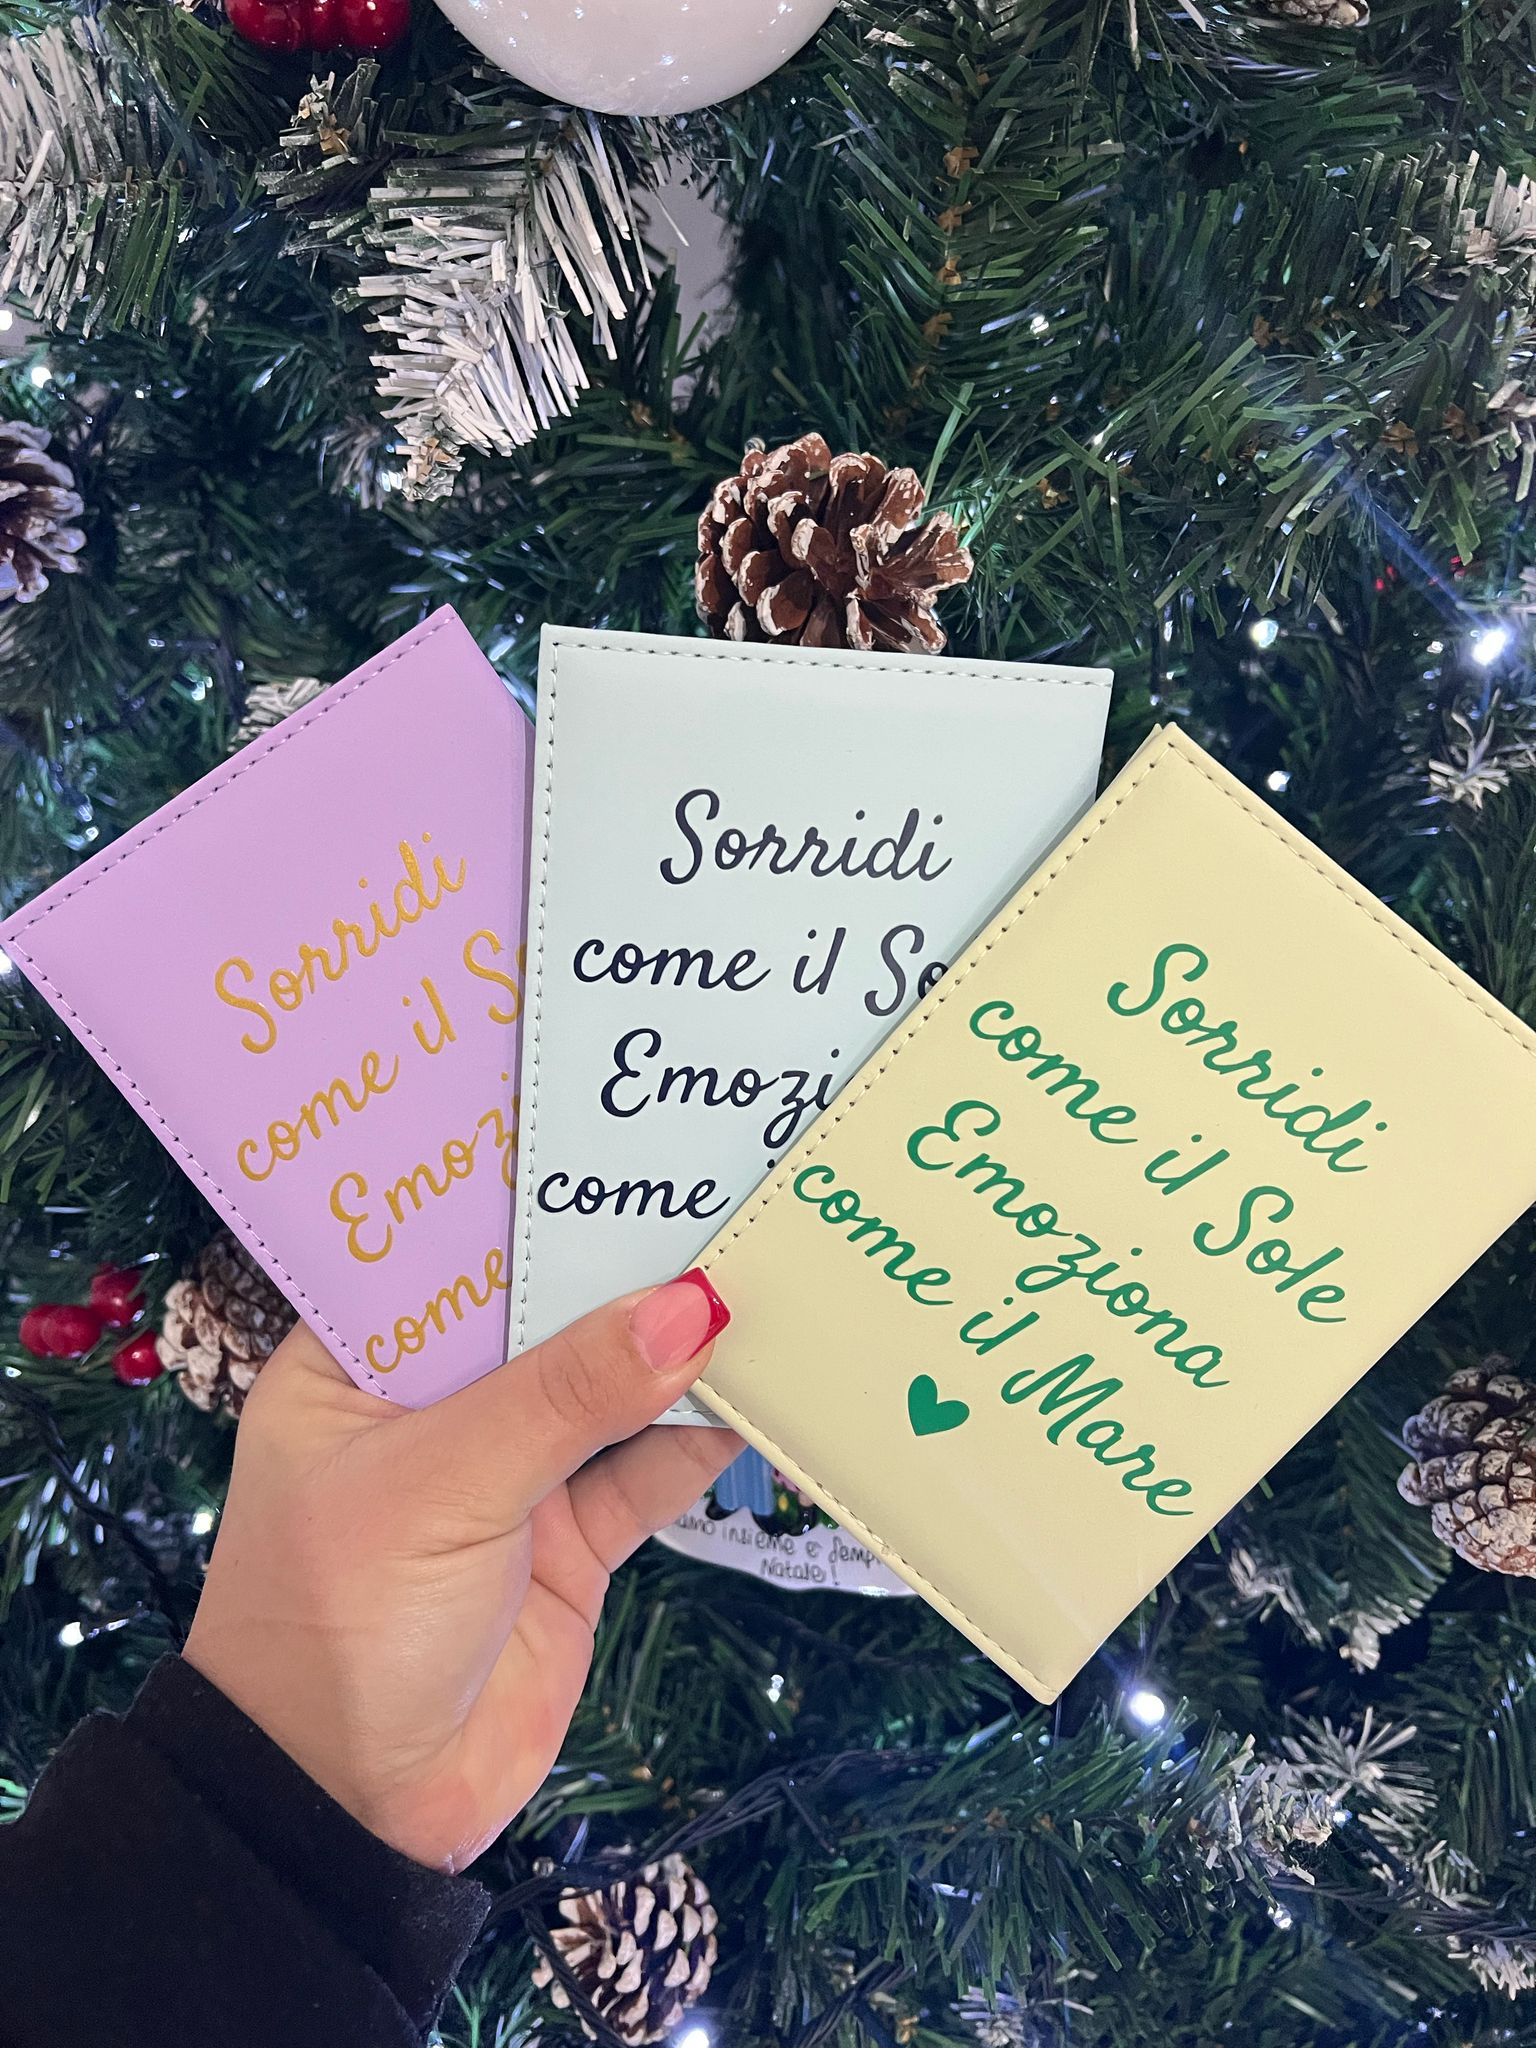 Sorridi
come il S
Emozi
come
Sorridi
come il So
Emozi
come
Sorridi
come il Sole
Emoziona
come il Mare
insieme e
Natale!